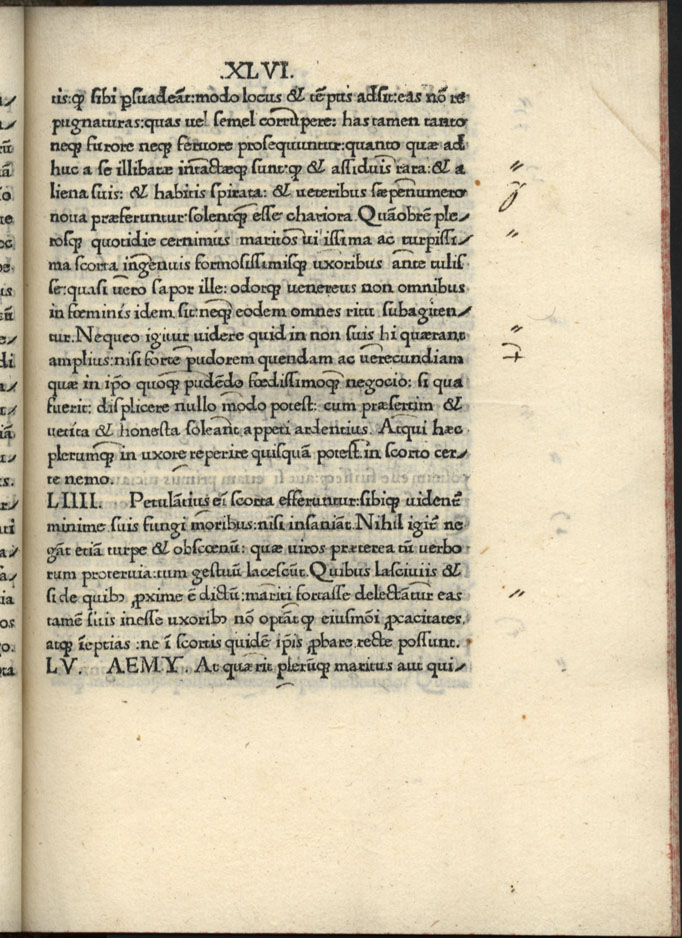 .XLVI.
tis:qꝫ sibi ꝑsuadeãt:modo locus & tẽpus adsit:eas nõ re
pugnaturas:quas uel semel corrupere: has tamen tanto
neqꝫ furore neqꝫ feruore prosequuntur:quanto quæ ad
huc a se illibatæ intactæqꝫ sunt:qꝫ & assiduis rara:& a
liena suis: & habitis sperata: & ueteribus sæpenumero
noua præferuntur:solentqꝫ esse chariora. Quãobrẽ ple
rosqꝫ quotidie cernimus maritos uilissima ac turpissi/
ma scorta ingenuis formosissimisqꝫ uxoribus ante tulis
se:quasi uero sapor ille: odorqꝫ uenereus non omnibus
in fœminis idem sit:neqꝫ eodem omnes ritu subagiten/
tur.Nequeo igitur uidere quid in non suis hi quærant
amplius:nisi forte pudorem quendam ac uerecundiam
quæ in ipõ quoqꝫ pudẽdo fœdissimoqꝫ negocio: si qua
fuerit: displicere nullo modo potest: cum præsertim &
uetita & honesta soleant appeti ardentius. Atqui hæc
plerumqꝫ in uxore reperire quisquã potest.in scorto cer
te nemo.
LIIII. Petulãtius eĩ scorta efferuntur:sibiqꝫ uidenẽ
minime suis fungi moribus:nisi insaniãt.Nihil igiẽ ne
gãt etiã turpe & obscœnũ: quæ uiros præterea tũ uerbo
rum proteruia:tum gestuũ lacescũt.Quibus lasciuiis &
si de quibꝰ ꝓxime ẽ dictũ:mariti fortasse delectãtur eas
tamẽ suis inesse uxoribꝰ nõ optãt:qꝫ eiusmõi ꝓcacitates
atqꝫ ĩeptias :ne ĩ scortis quidẽ ipĩs ꝓbare recte possunt.
LV. AEMY. At quærit plerũqꝫ maritus aut qui/